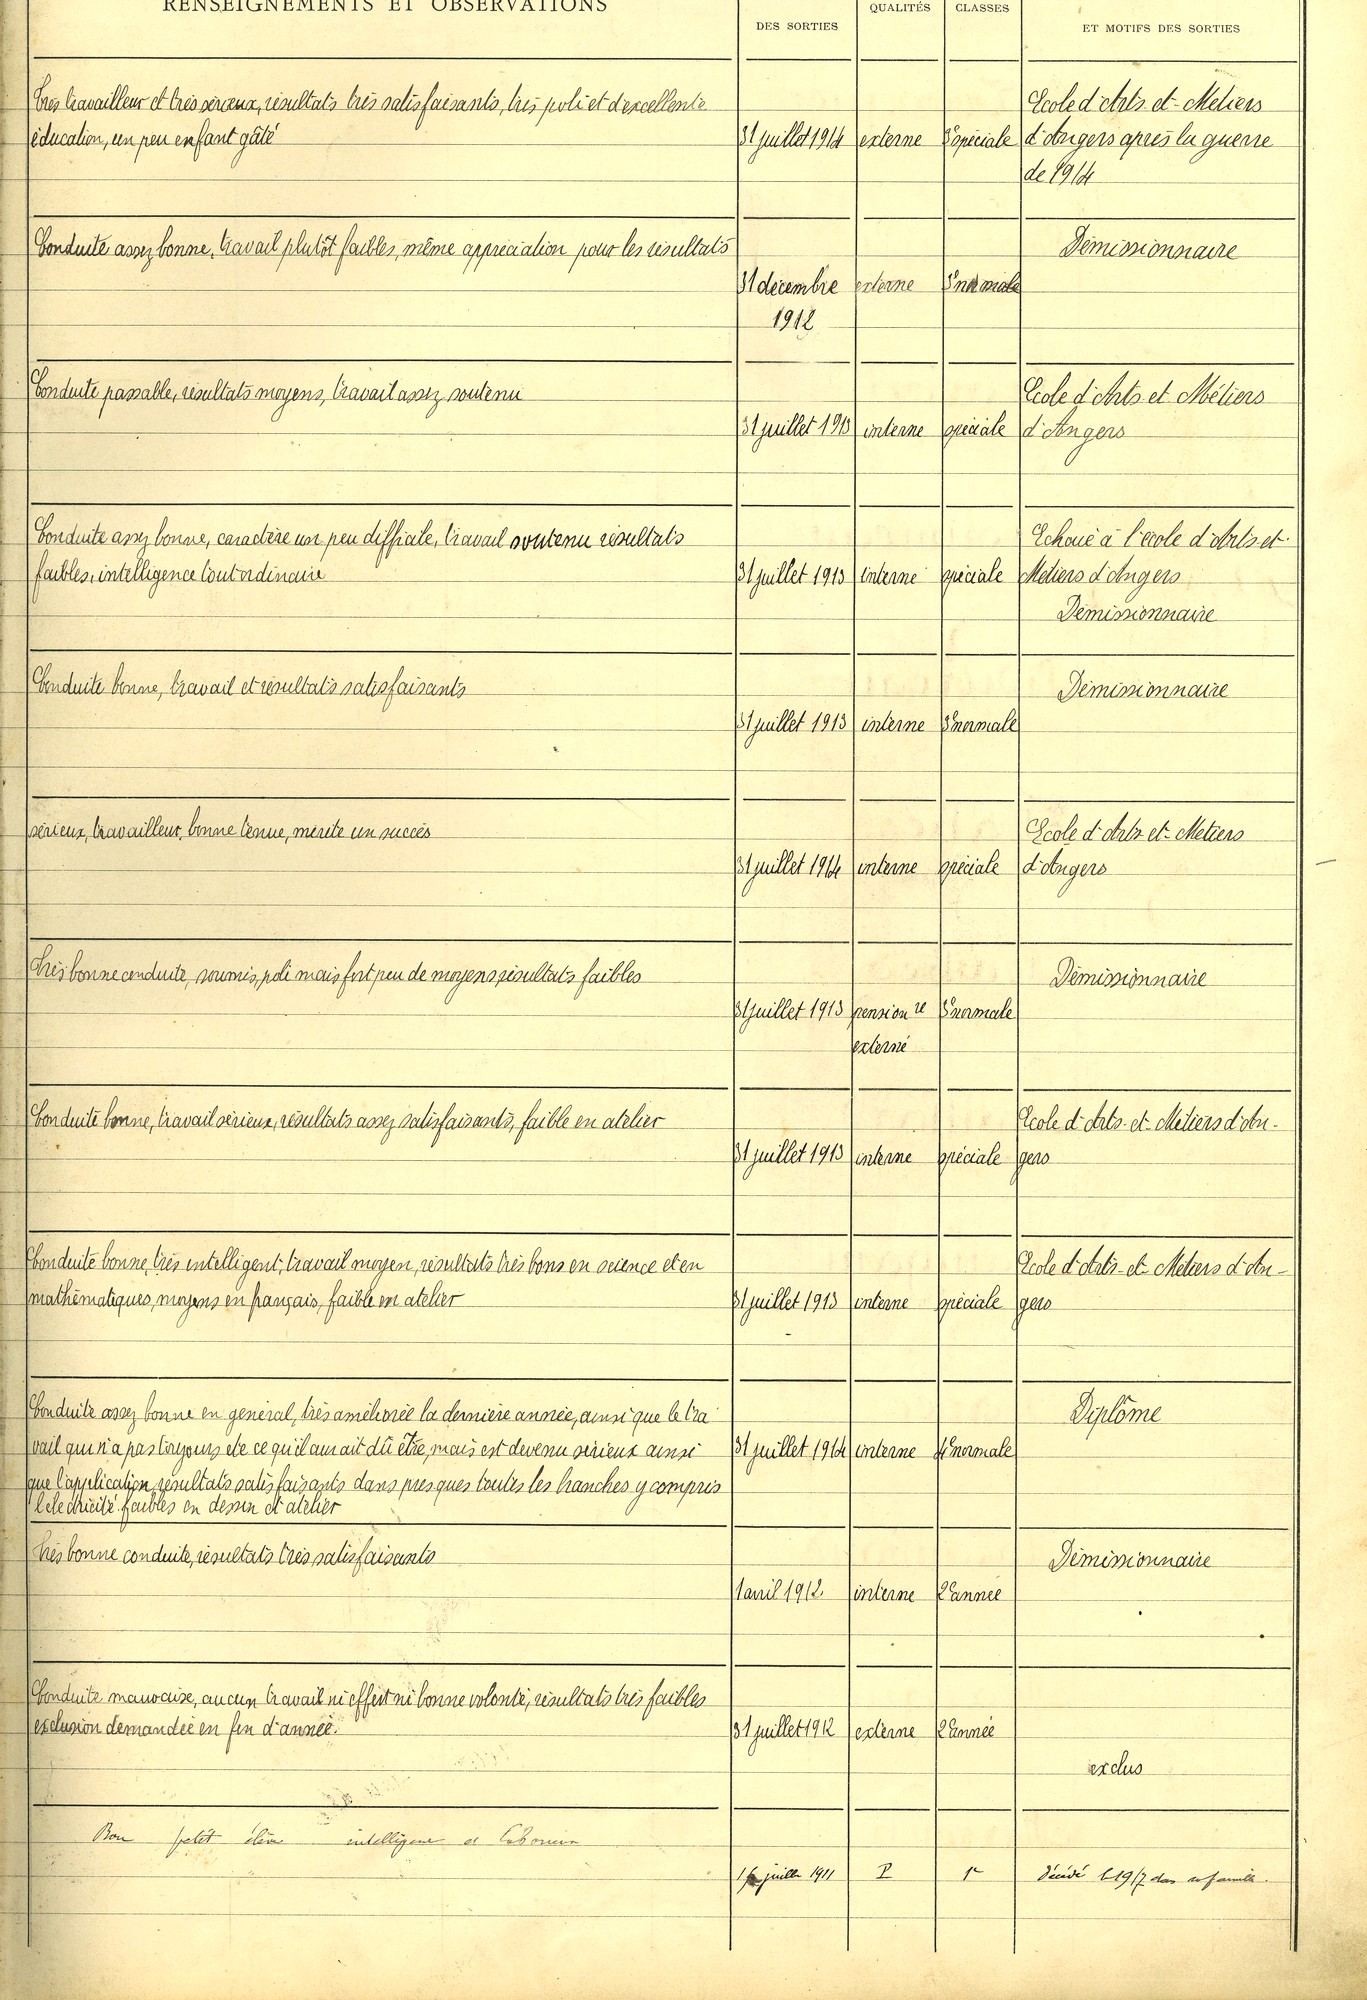 RENSEIGNEMENTS ET OBSERVATIONS
DES SORTIES
QUALITÉS
CLASSES
ET MOTIFS DES SORTIES
Très travailleur et très sérieux, résultats très satisfaisants, très poli et d'excellente
éducation, un peu enfant gâté
31 juillet 1914
externe
3e spéciale
Ecole d'Arts-et-Métiers
d'Angers après la guerre
de 1914
Conduite assez bonne, travail plutôt faibles, même appréciation pour les résultats
31 décembre
1912
externe
3e normale
Démissionnaire
Conduite passable, résultats moyens, travail assez soutenu
31 juillet 1913
interne
spéciale
Ecole d'Arts et Métiers
d'Angers
Conduite assez bonne, caractère un peu difficile, travail soutenu résultats
faibles, intelligence tout ordinaire
31 juillet 1913
interne
spéciale
Echoué à l'école d'Arts-et-
Métiers d'Angers
Démissionnaire
Conduite bonne, travail et résultats satisfaisants
31 juillet 1913
interne
3e normale
Démissionnaire
sérieux, travailleur, bonne tenue, mérite un succès
31 juillet 1914
interne
spéciale
Ecole d'Arts-et-Métiers
d'Angers
Très bonne conduite, soumis, poli mais fort peu de moyens résultats faibles
31 juillet 1913
pension re
externé
3e normale
Démissionnaire
Conduite bonne, travail sérieux, résultats assez satisfaisants, faible en atelier
31 juillet 1913
interne
spéciale
Ecole d'Arts-et-Métiers d'An-
gers
Conduite bonne, très intelligent, travail moyen, résultats très bons en science et en
mathématiques, moyens en français, faible en atelier
31 juillet 1913
interne
spéciale
Ecole d'Arts-et-Métiers d'An-
gers
Conduite assez bonne en général, très améliorée la dernière année, ainsi que le tra
vail qui n'a pas toujours été ce qu'il aurait dû être, mais est devenu sérieux ainsi
que l'application, résultats satisfaisants dans presques toutes les branches y compris
l'électricité faibles en dessin et atelier
31 juillet 1914
interne
4e normale
Diplôme
Très bonne conduite, résultats très satisfaisants
1 avril 1912
interne
2e année
Démissionnaire
Conduite mauvaise, aucun travail ni effort ni bonne volonté, résultats très faibles
exclusion demandée en fin d'année.
31 juillet 1912
externe
2e année
exclus
Bon petit élève intelligent et laborieux
juillet 1911
I
1e
Décédé le 19/7 dans sa famille.